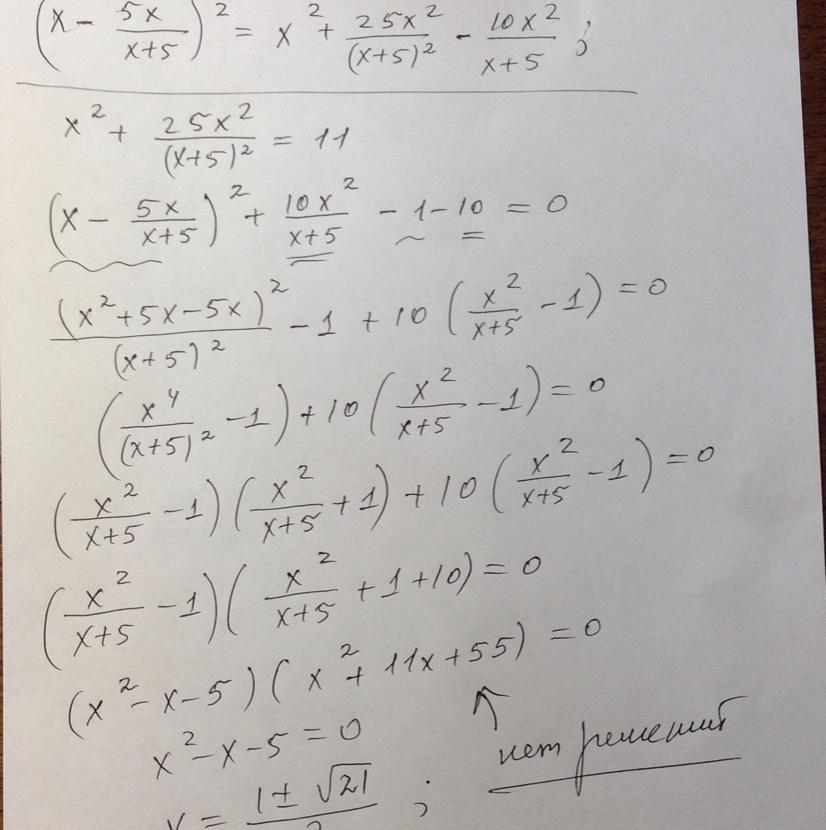 (x - 5x/(x+5))² = x² + 25x²/(x+5)² - 10x²/(x+5) ;
x² + 25x²/(x+5)² = 11
(x - 5x/(x+5))² + 10x²/(x+5) - 1 - 10 = 0
(x²+5x-5x)²/(x+5)² - 1 + 10(x²/(x+5) - 1) = 0
(x⁴/(x+5)² - 1) + 10(x²/(x+5) - 1) = 0
(x²/(x+5) - 1)(x²/(x+5) + 1) + 10(x²/(x+5) - 1) = 0
(x²/(x+5) - 1)(x²/(x+5) + 1 + 10) = 0
(x² - x - 5)(x² + 11x + 55) = 0
x² - x - 5 = 0
нет решений
x = (1 ± √21)/2 ;